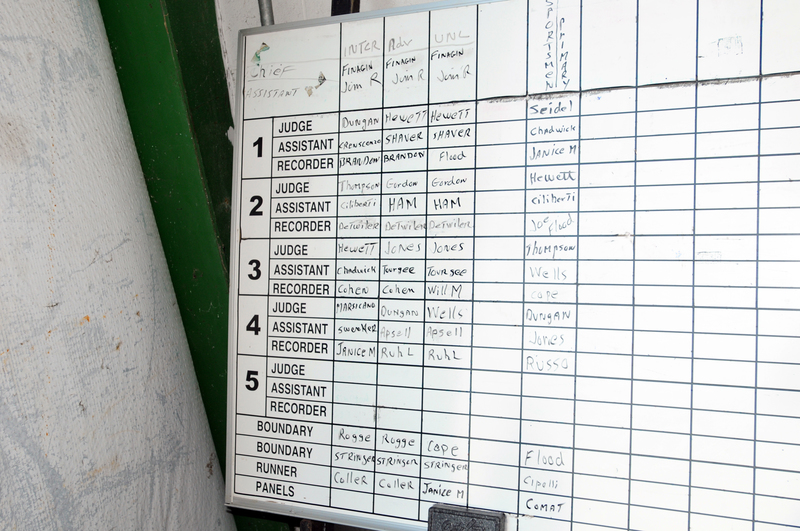 INTER Adv UNL SPORTSMEN PRIMARY
Chief FINAGIN FINAGIN FINAGIN
ASSISTANT Jim R Jim R Jim R
1 JUDGE DUNGAN HewETT HewETT Seidel
ASSISTANT CRESCENZO SHAVER SHAVER Chadwick
RECORDER BRANDON BRANDON Flood JANICE M
2 JUDGE Thompson Gordon Gordon Hewett
ASSISTANT CiliberTi HAM HAM Ciliberti
RECORDER DeTwiler DeTwiler DeTwiler Joe Flood
3 JUDGE HewETT JONES JONES Thompson
ASSISTANT Chadwick Toursee Toursee Wells
RECORDER Cohen Cohen Will M cape
4 JUDGE MARSICANO DUNGAN Wells DUNGAN
ASSISTANT Apsell Apsell Jones
RECORDER JANICE M Ruhl Ruhl Russo
5 JUDGE
ASSISTANT
RECORDER
BOUNDARY Rogge Rogge Cape Flood
BOUNDARY STRINGER STRINGER STRINGER Cipolli
RUNNER Coller Coller JANICE M COMAT
PANELS